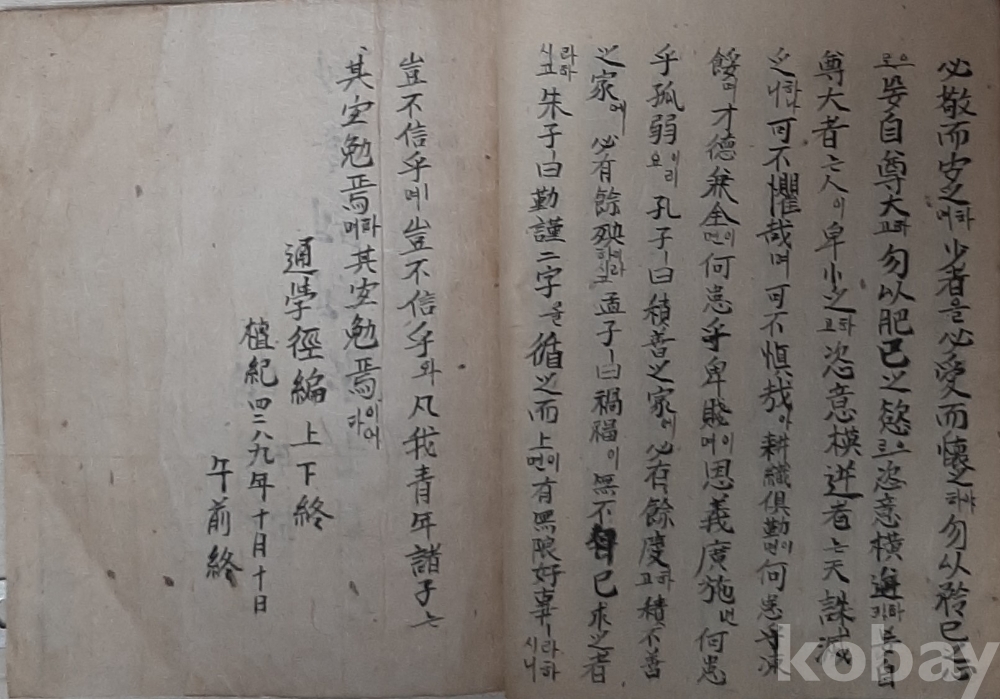 必敬而安之하며少者을必愛而懷之하야勿以矜己之
로으妄自尊大하고勿以肥己之慾으로恣意橫逆하라
尊大者는人이卑小之하고恣意橫逆者는天誅滅
之하나니可不懼哉며可不愼哉아耕織俱勤이면何患乎凍
餒며才德兼全이면何患乎卑賤이며恩義廣施면何患
乎孤弱이리요孔子ㅣ曰積善之家에必有餘慶하고積不善
之家에必有餘殃이라하시고孟子ㅣ曰禍福이無不自己求之者
라하시고朱子ㅣ曰勤謹二字을循之而上이면有無限好事ㅣ라하시니
豈不信乎며豈不信乎와凡我靑年諸子는
其宜勉焉이어다其宜勉焉이어다
通學徑編上下終
檀紀四二八九年十月十日
午前終
kobay